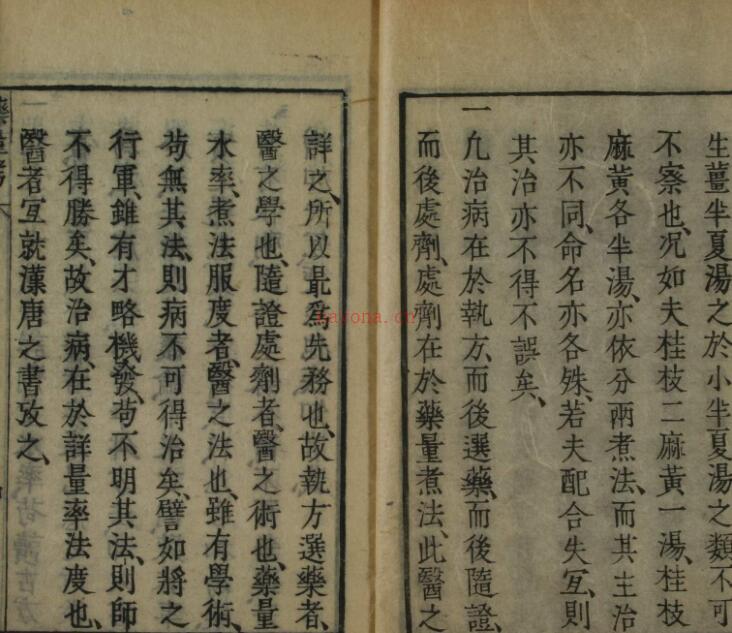 生薑半夏湯之於小半夏湯之類不可
不察也、况如夫桂枝二麻黄一湯、桂枝
麻黄各半湯、亦依分兩煮法、而其主治
亦不同、命名亦各殊、若夫配合失冝、則
其治亦不得不誤矣、
一 凢治病在於執方、而後選藥、而後隨證、
而後處劑、處劑在於藥量煮法、此醫之
詳之、所以最爲先務也、故執方選藥者、
醫之學也、隨證處劑者、醫之術也、藥量
水率、煮法服度者、醫之法也、雖有學術、
苟無其法、則病不可得治矣、譬如將之
行軍、雖有才略機發、苟不明其法、則師
不得勝矣、故治病、在於詳量率法度也、
醫者冝就漢唐之書攷之、